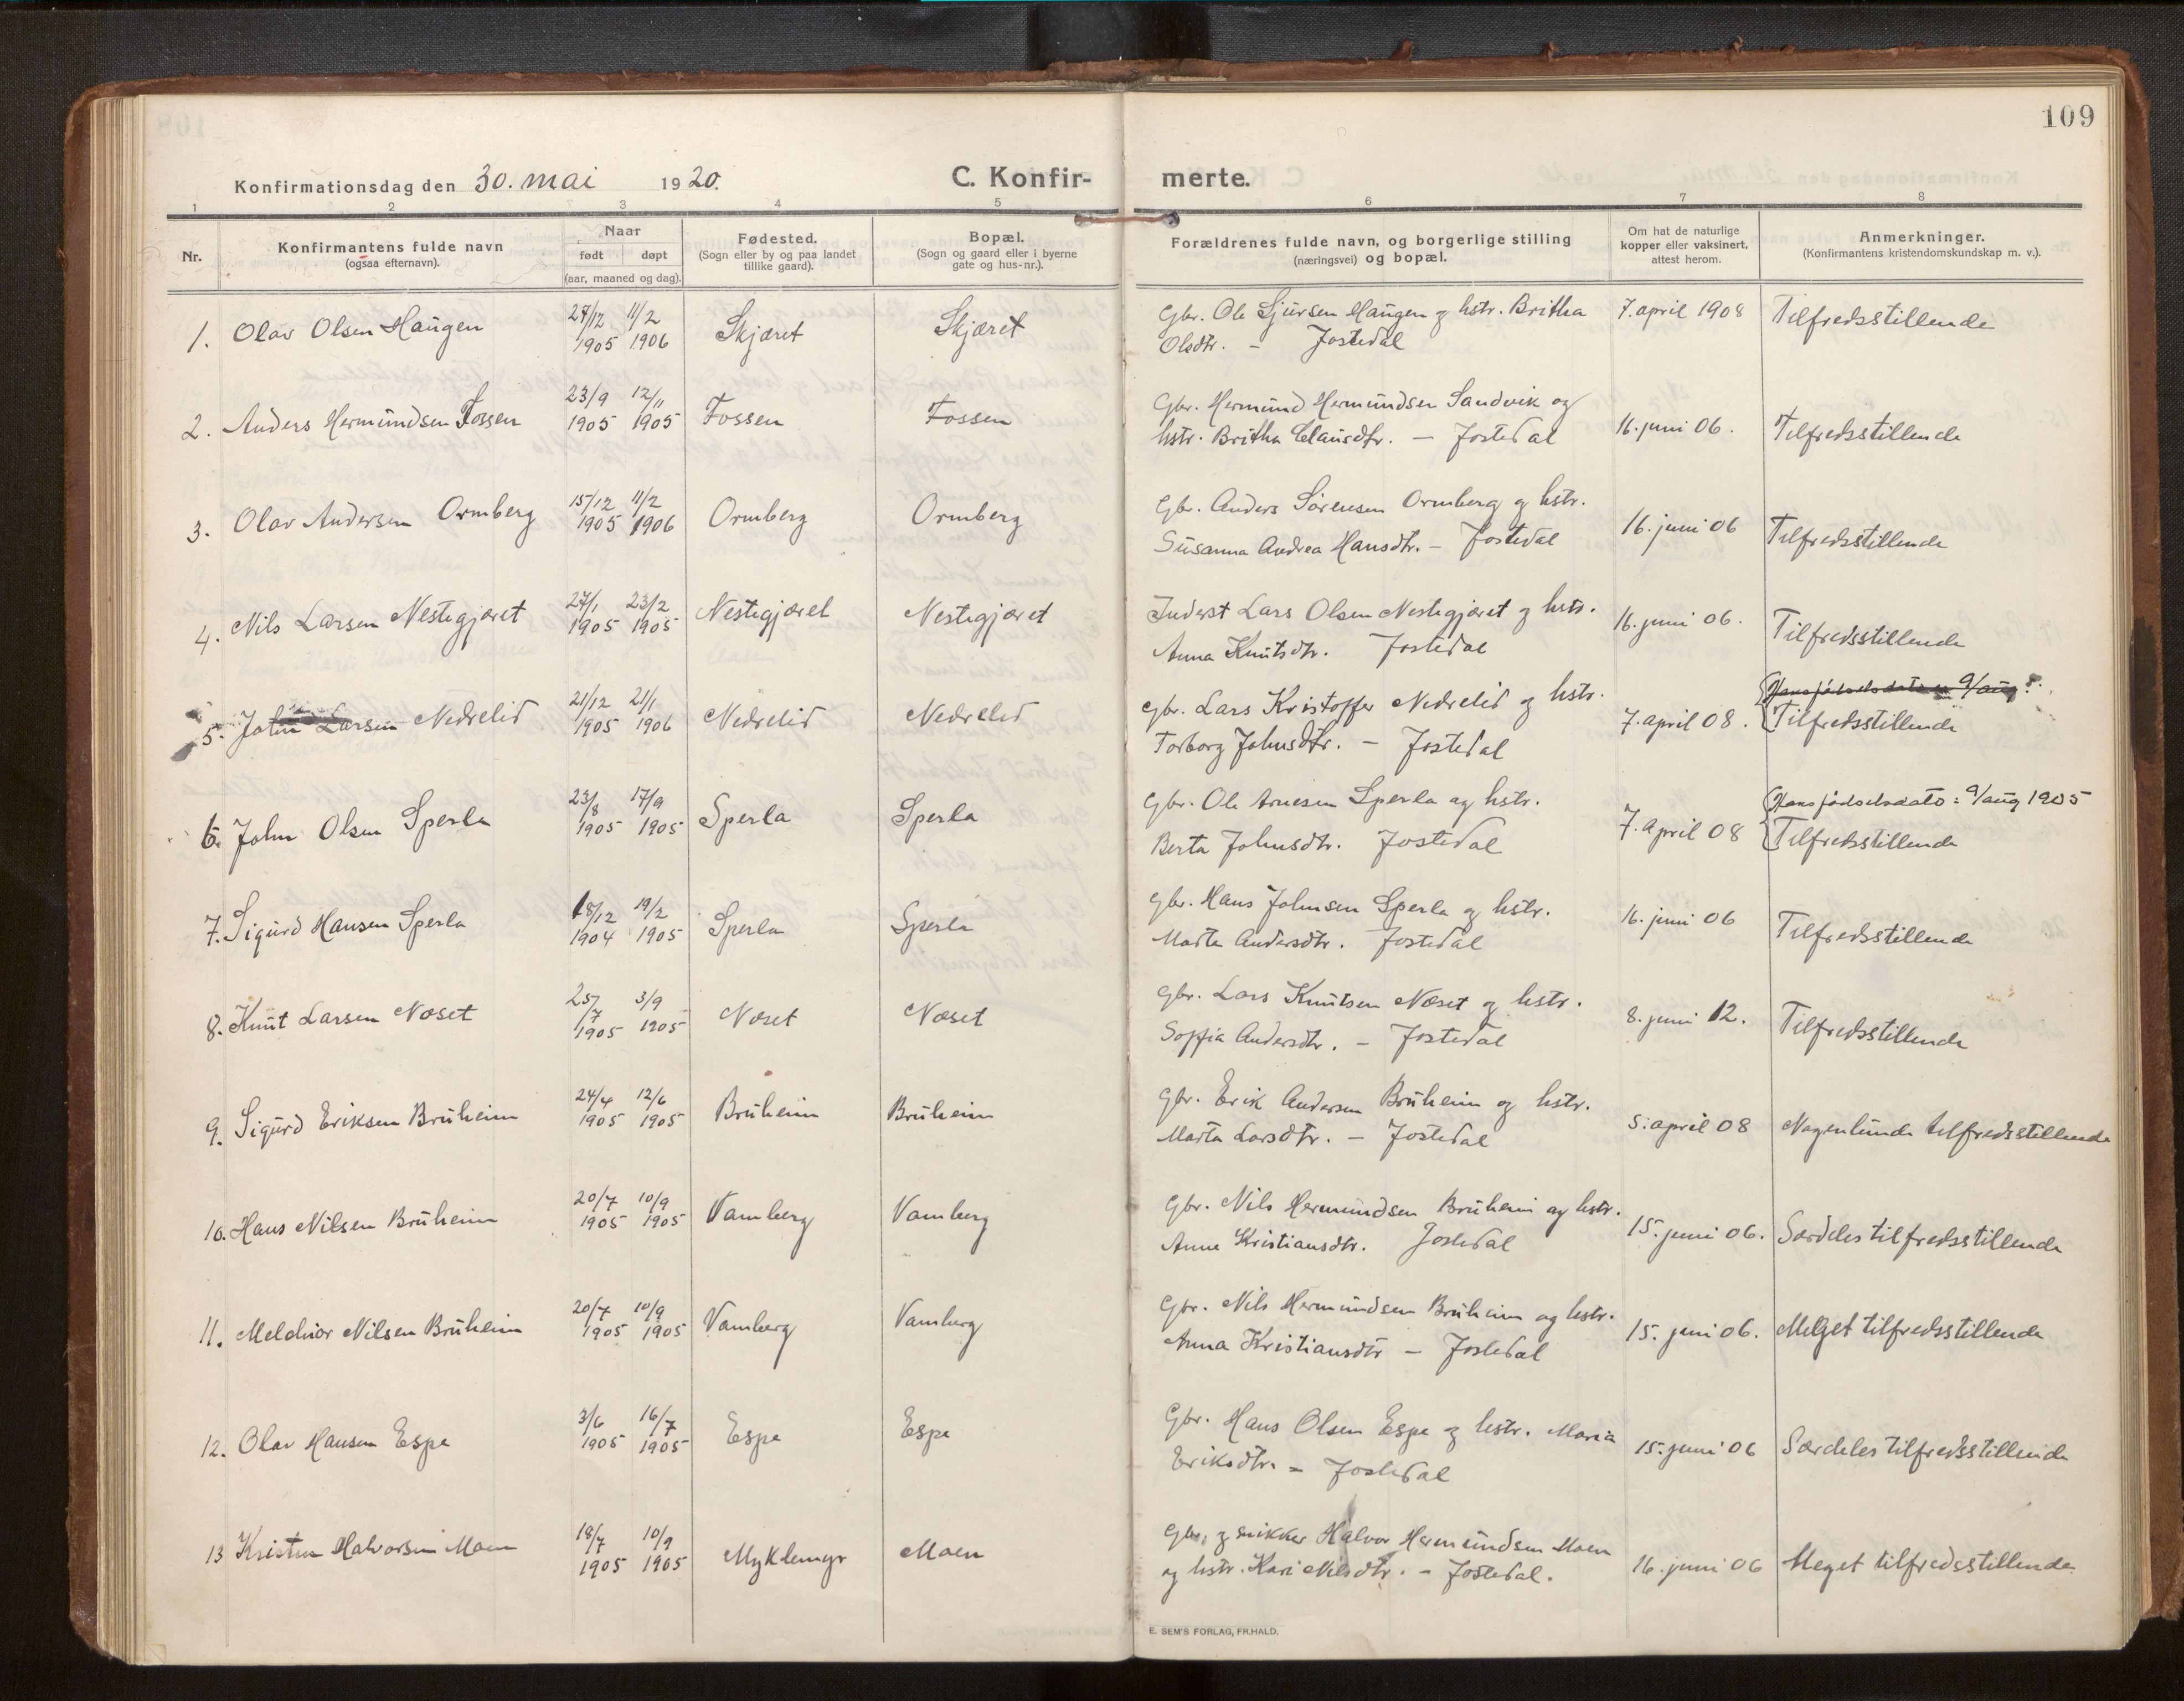 109
Konfirmationsdag den 30. mai 1920.
C. Konfirmerte.
1 2 3 4 5 6 7 8
Nr.
Konfirmantens fulde navn
(ogsaa efternavn).
Naar
født døpt
(aar, maaned og dag).
Fødested.
(Sogn eller by og paa landet
tillike gaard).
Bopæl.
(Sogn og gaard eller i byerne
gate og hus-nr.).
Forældrenes fulde navn, og borgerlige stilling
(næringsvei) og bopæl.
Om hat de naturlige
kopper eller vaksinert,
attest herom.
Anmerkninger.
(Konfirmantens kristendomskundskap m. v.).
1. Olav Olsen Haugen 27/12 1905 11/2 1906 Skjæret Skjæret Gbr. Ole Sjursen Haugen og hstr. Britha 7. april 1908 Tilfredsstillende
Olsdtr. - Jostedal
2. Anders Hermundsen Fossen 23/9 1905 12/11 1905 Fossen Fossen Gbr. Hermund Hermundsen Sandvik og 16. juni 06. Tilfredsstillende
hstr. Britha Clausdtr. - Jostedal
3. Olav Andersen Ormberg 15/12 1905 11/2 1906 Ormberg Ormberg Gbr. Anders Sørensen Ormberg og hstr. 16. juni 06 Tilfredsstillende
Susanna Andrea Hansdtr. - Jostedal
4. Nils Larsen Nestegjæret 27/1 1905 23/2 1905 Nestegjæret Nestegjæret Inderst Lars Olsen Nestegjæret og hstr. 16. juni 06. Tilfredsstillende
Anna Knutsdtr. Jostedal
5. John Larsen Nedrelid 21/12 1905 21/1 1906 Nedrelid Nedrelid Gbr. Lars Kristoffer Nedrelid og hstr. 7. april 08. Hans fødselsdato er 9/aug
Torborg Johnsdtr. - Jostedal Tilfredsstillende
6. John Olsen Sperla 23/8 1905 17/9 1905 Sperla Sperla Gbr. Ole Arnesen Sperla og hstr. 7. april 08 Hans fødselsdato: 9/aug 1905
Berta Johnsdtr. Jostedal Tilfredsstillende
7. Sigurd Hansen Sperla 18/12 1904 19/2 1905 Sperla Sperla Gbr. Hans Johnsen Sperla og hstr. 16. juni 06 Tilfredsstillende
Marta Andersdtr. Jostedal
8. Knut Larsen Næset 25/7 1905 3/9 1905 Næset Næset Gbr. Lars Knutsen Næset og hstr. 8. juni 12. Tilfredsstillende
Soffia Andersdtr. - Jostedal
9. Sigurd Eriksen Bruheim 24/4 1905 12/6 1905 Bruheim Bruheim Gbr. Erik Andersen Bruheim og hstr. 5. april 08 Nogenlunde tilfredsstillende
Marta Larsdtr. - Jostedal
10. Hans Nilsen Bruheim 20/7 1905 10/9 1905 Vamberg Vamberg Gbr. Nils Hermundsen Bruheim og hstr. 15. juni 06. Særdeles tilfredsstillende
Anna Kristiansdtr. Jostedal
11. Melchior Nilsen Bruheim 20/7 1905 10/9 1905 Vamberg Vamberg Gbr. Nils Hermundsen Bruheim og hstr. 15. juni 06. Meget tilfredsstillende
Anna Kristiansdtr - Jostedal
12. Olav Hansen Espe 3/6 1905 16/7 1905 Espe Espe Gbr. Hans Olsen Espe og hstr. Maria 15. juni 06 Særdeles tilfredsstillende
Eriksdtr. - Jostedal
13 Kristen Halvorsen Moen 18/7 1905 10/9 1905 Myklemyr Moen Gbr. og snikker Halvor Hermundsen Moen 16. juni 06 Meget tilfredsstillende
og hstr. Kari Nilsdtr. - Jostedal.
E. SEM'S FORLAG, FR.HALD.